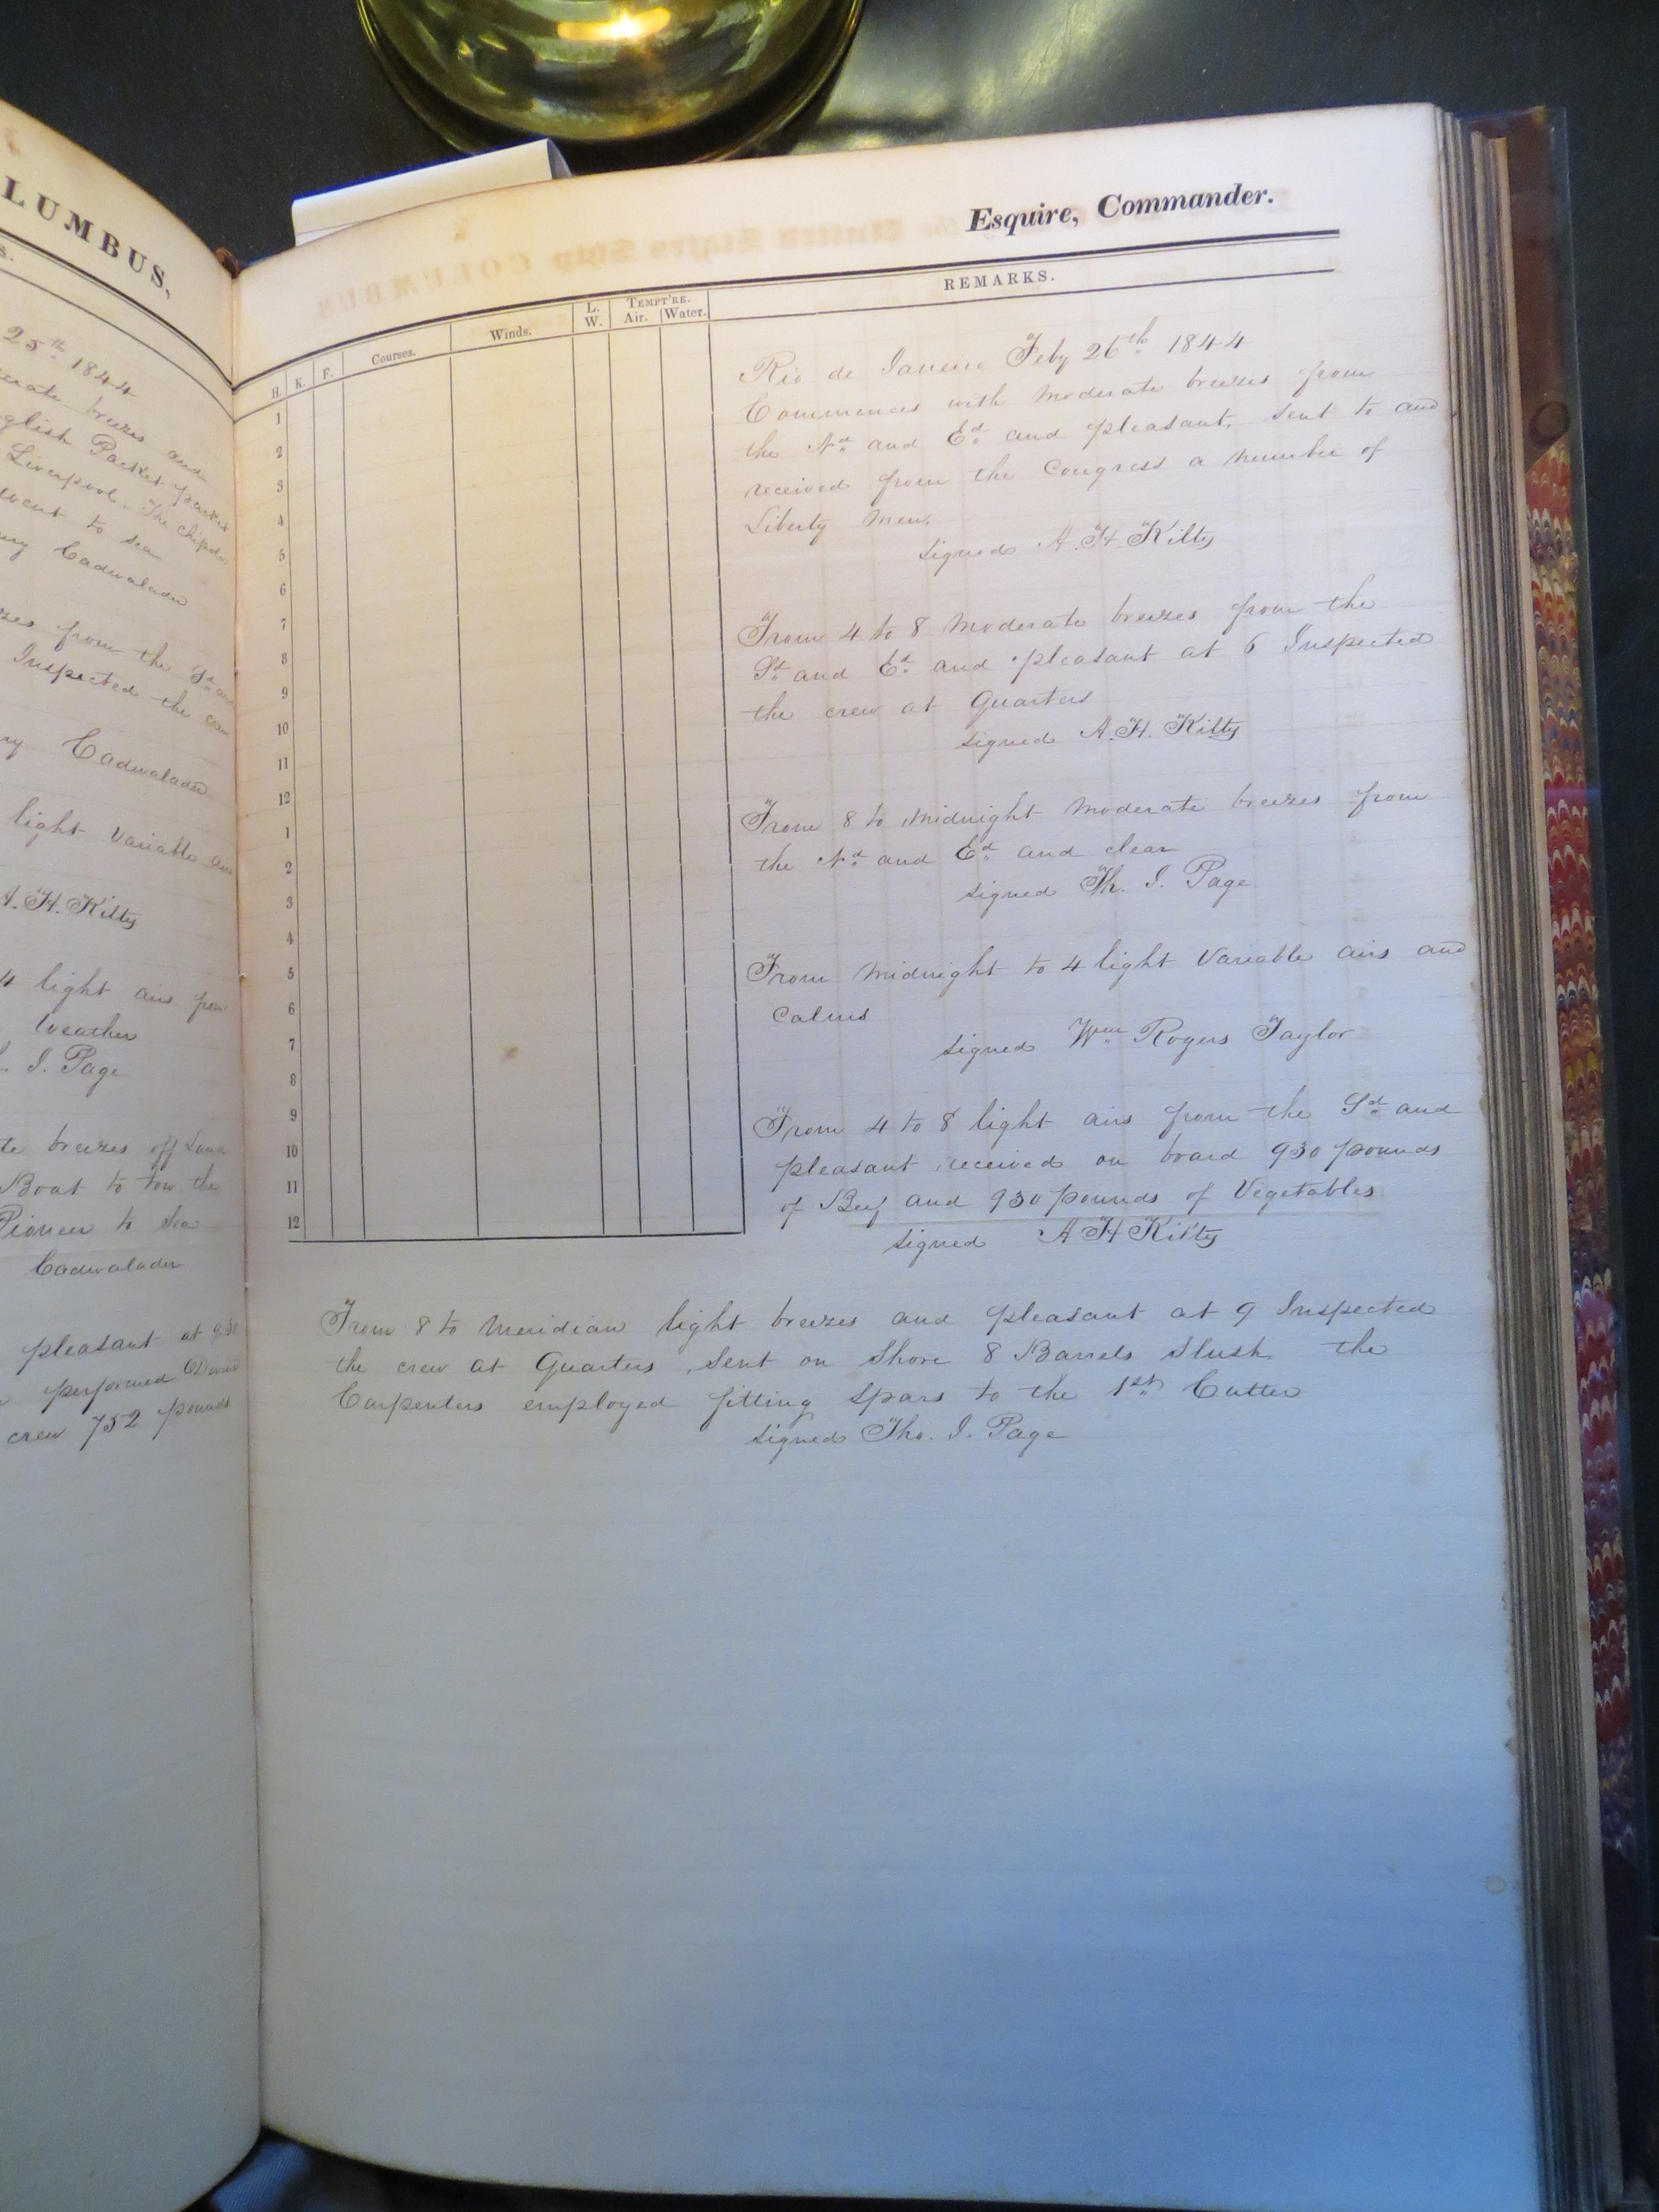 LUMBUS,
s.
25th 1844
erate breezes and
glish Packet packet
Liverpool. The
went to sea
Cadwalader
zes from the Sd and
Inspected the crew
ry Cadwalader
light Variable airs
A. H. Kilty
4 light airs from
Weather
I. Page
te breezes off Land
Boat to tow the
Pioneer to Sea
Cadwalader
pleasant at 9.30
performed Divine
crew 752 pounds
Esquire, Commander.
H. K. F. Courses. Winds. L. W. TEMPT'RE. Air. Water. REMARKS.
1
2
3
4
5
6
7
8
9
10
11
12
1
2
3
4
5
6
7
8
9
10
11
12
Rio de Janeiro Feby 26th 1844
Commences with Moderate breezes from
the Nd and Ed and pleasant, sent to and
received from the Congress a number of
Liberty Men.
signed A. H. Kilty
From 4 to 8 Moderate breezes from the
Sd and Ed and pleasant at 6 Inspected
the crew at Quarters
signed A. H. Kilty
From 8 to Midnight Moderate breezes from
the Nd and Ed and clear
signed Th. I. Page
From Midnight to 4 light Variable airs and
Calms
signed Wm Rogers Taylor
From 4 to 8 light airs from the Sd and
pleasant, received on board 930 pounds
of Beef and 930 pounds of Vegetables
signed A H Kilty
From 8 to Meridian light breezes and pleasant at 9 Inspected
the crew at Quarters, Sent on Shore 8 Barrels Slush the
Carpenters employed fitting Spars to the 1st Cutter
signed Tho. I. Page